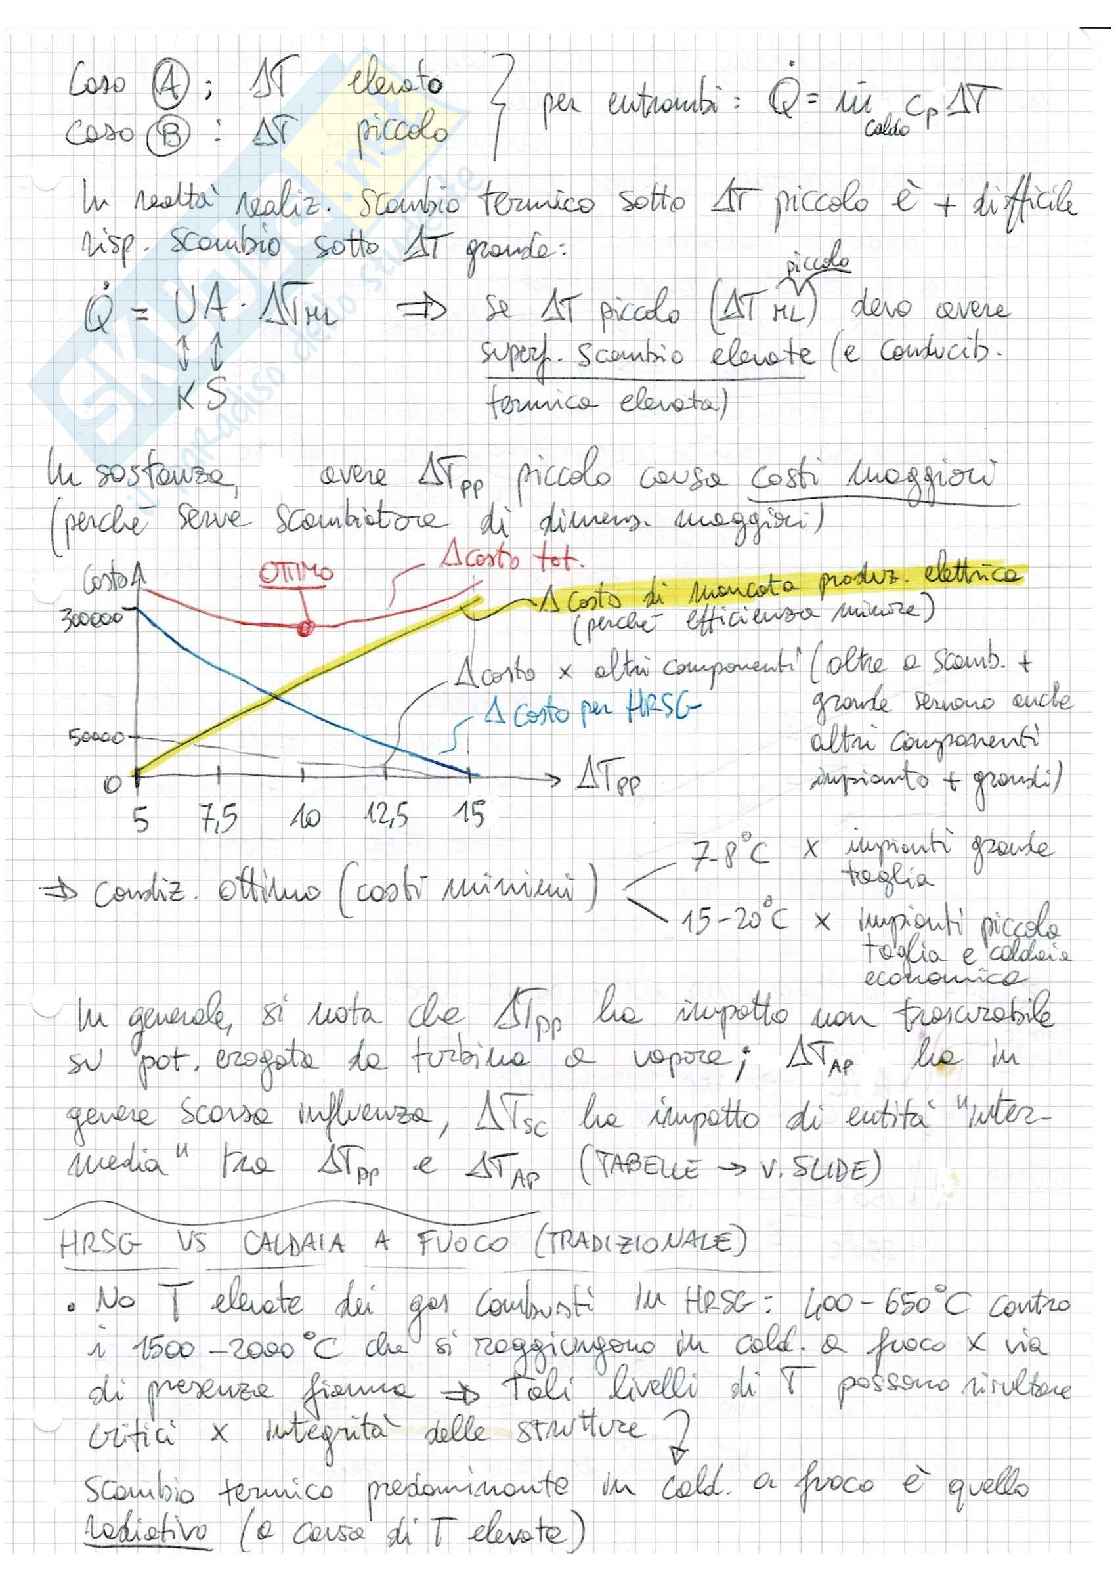 Caso A : ΔT elevato
Caso B : ΔT piccolo
per entrambi : Q̇ = ṁ caldo cp ΔT
In realtà realiz. scambio termico sotto ΔT piccolo è + difficile
risp. scambio sotto ΔT grande :
Q̇ = UA · ΔT ML ⇒ se ΔT piccolo (ΔT ML) piccolo devo avere
superf. scambio elevate (e conducib.
K S termica elevata)
In sostanza, avere ΔTPP piccolo causa costi maggiori
(perché serve scambiatore di dimens. maggiori)
Costo
OTTIMO
Δ costo tot.
300000
Δ costo di mancata produz. elettrica
(perché efficienza minore)
Δ costo x altri componenti (oltre a scamb. +
grande servono anche
altri componenti
impianto + grandi)
Δ Costo per HRSG
50000
0
ΔTPP
5 7,5 10 12,5 15
⇒ Condiz. ottimo (costi minimi)
7-8°C x impianti grande
taglia
15-20°C x impianti piccola
taglia e caldaia
economica
In generale, si nota che ΔTPP ha impatto non trascurabile
su pot. erogata da turbina a vapore ; ΔTAP ha in
genere scarsa influenza, ΔTSC ha impatto di entità "inter-
media" tra ΔTPP e ΔTAP (TABELLE → V. SLIDE)
HRSG VS CALDAIA A FUOCO (TRADIZIONALE)
• No T elevate dei gas combusti in HRSG : 400-650°C contro
i 1500-2000°C che si raggiungono in cald. a fuoco x via
di presenza fiamma ⇒ Tali livelli di T possono risultare
critici x integrità delle strutture
Scambio termico predominante in cald. a fuoco è quello
radiativo (a causa di T elevate)
SKUOLA.net
il paradiso dello studente